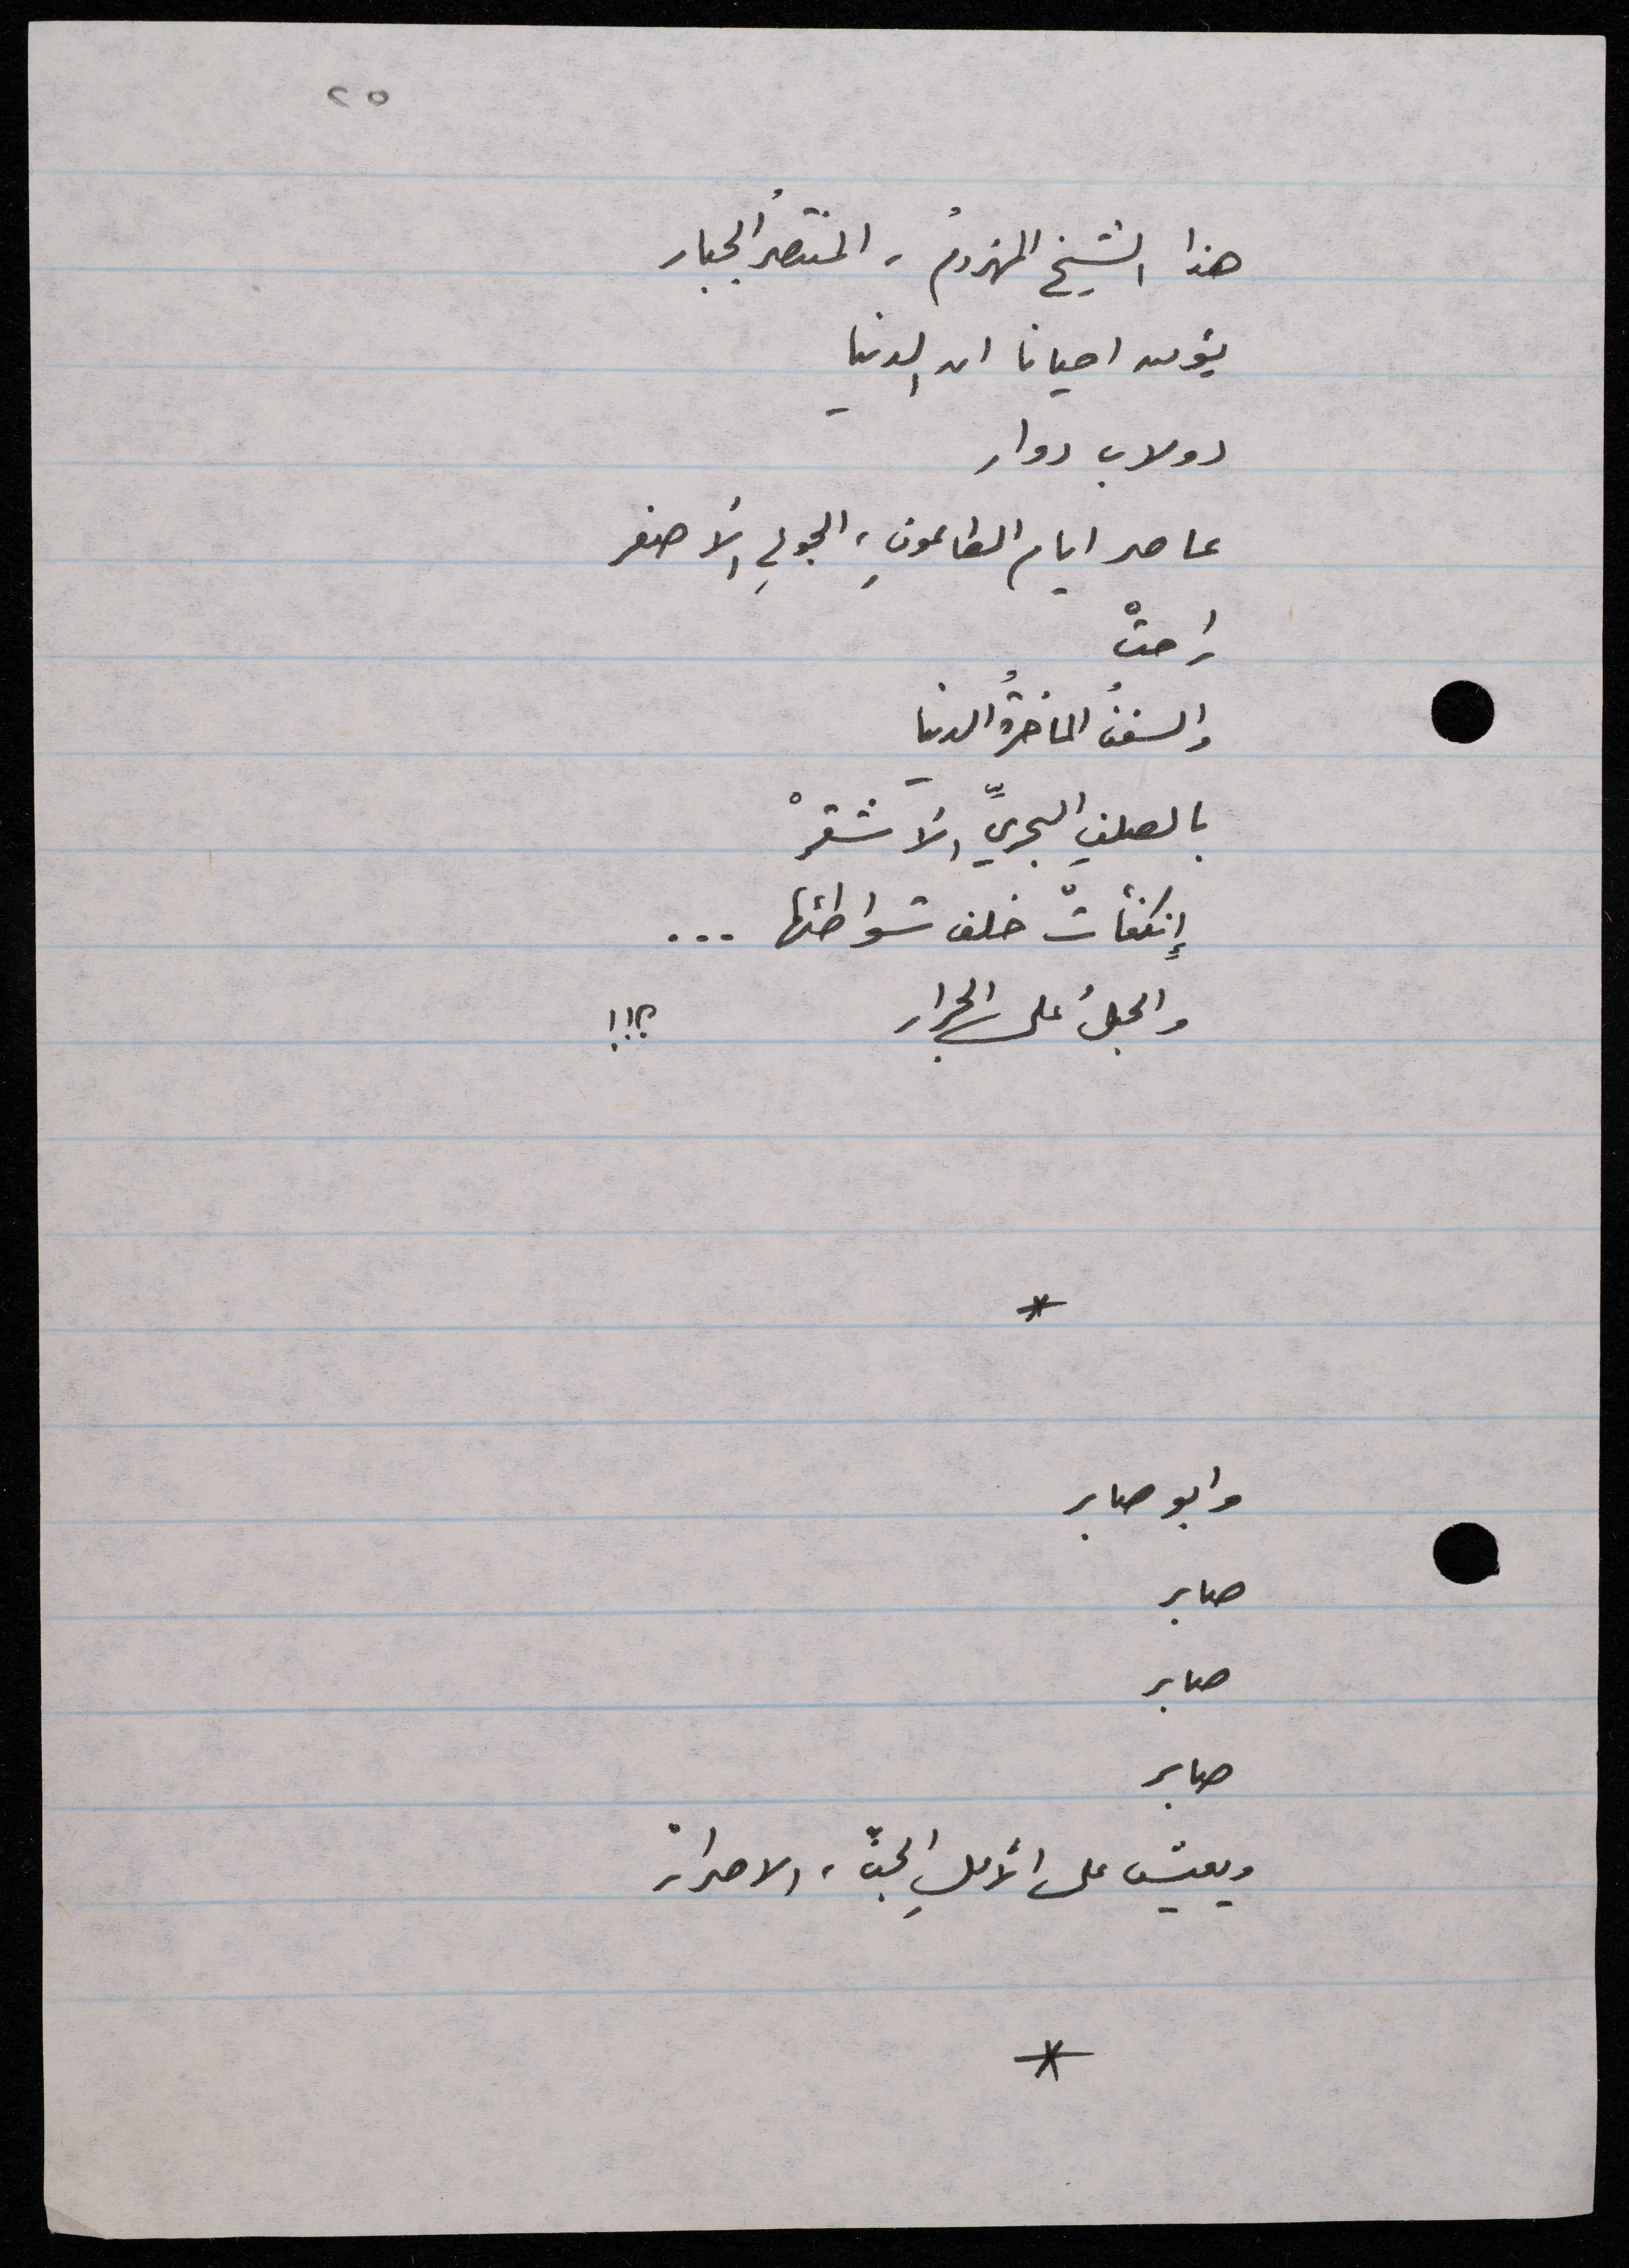 ٢٥
هذا الشيخ المهزومُ ، المنتصرُ الجبار
يؤمن احيانا ان الدنيا
دولاب دوار
عاصر ايام الطاعونِ ، الجولِ الأصفر
راحتْ
والسفنُ الماخرةُ الدنيا
بالصلفِ البحريِّ الأشقرْ
إنكفأتْ خلف شواطئها ...
والحبلُ على الجرار ؟!!
*
وابو صابر
صابر
صابر
صابر
ويعيش على الأملِ الحيِّ ، الاصرارْ
*